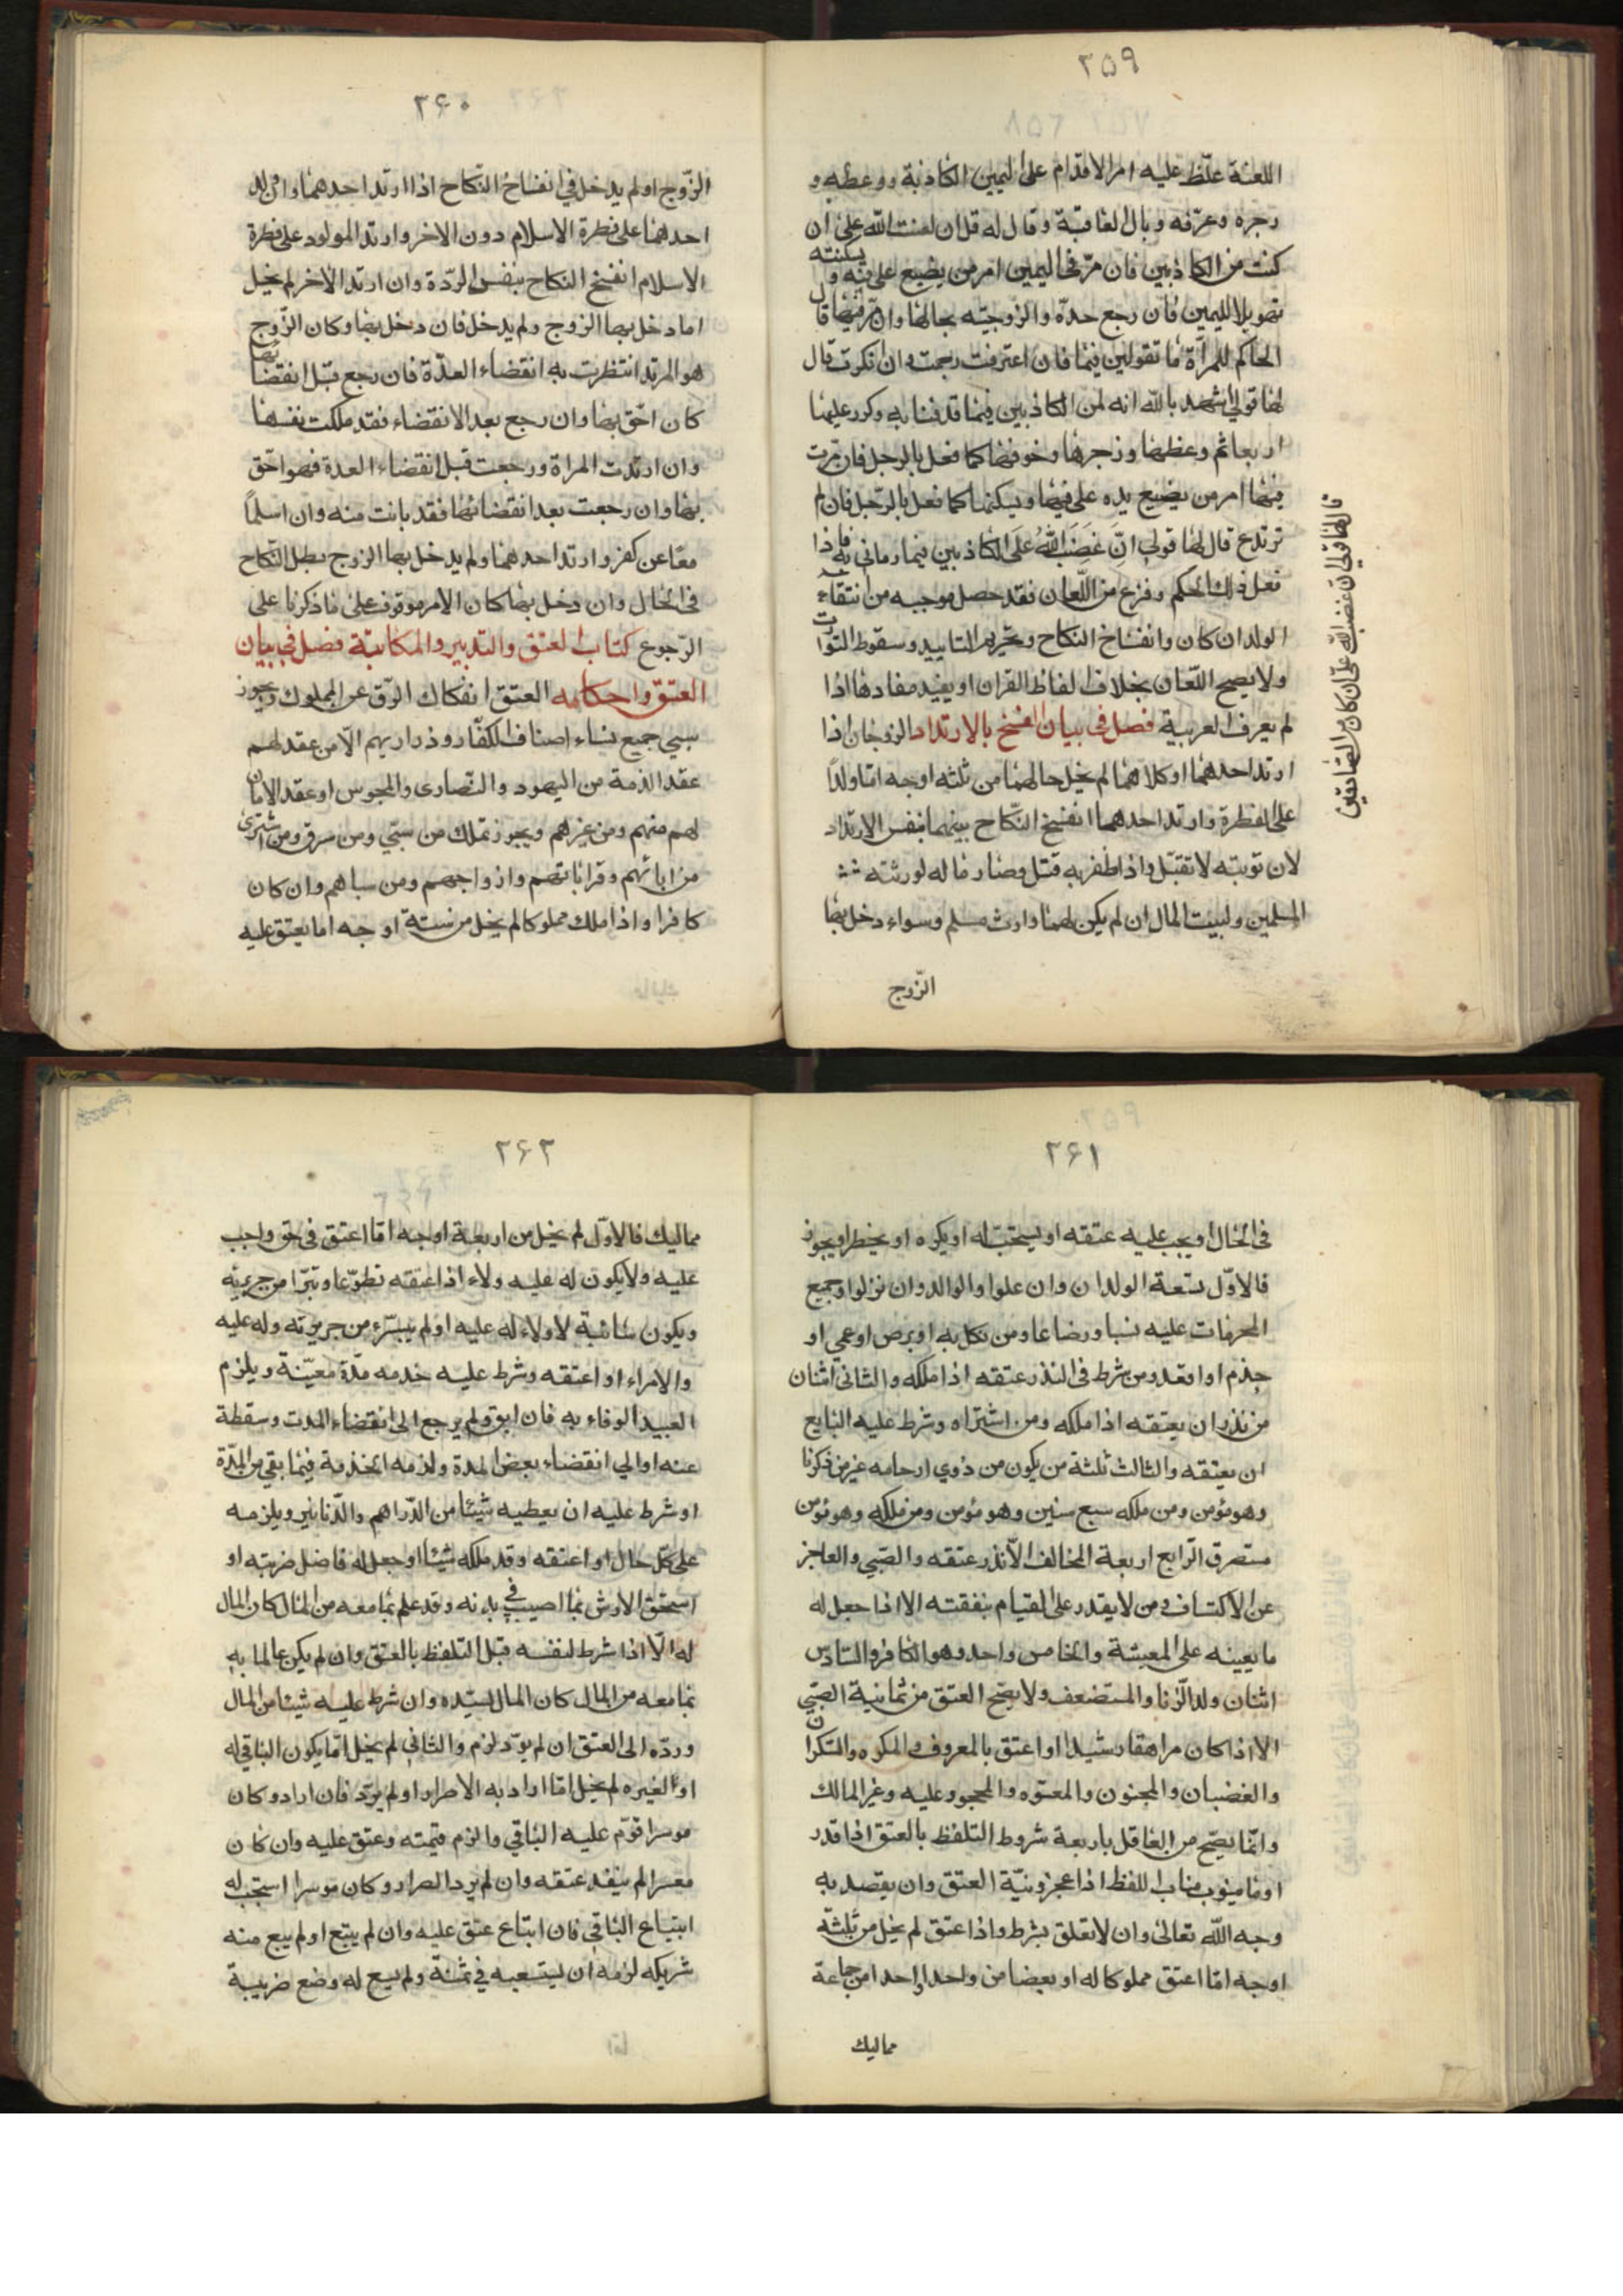 ٢٥٩
اللعنة غلّظ عليه امر الاقدام على اليمين الكاذبة ووعظه و
زجره وعرّفه وبال العاقبة وقال له قل ان لعنت الله علىّ ان
كنت من الكاذبين فان مرّ فى اليمين امر من يضع على فيه و يسكنته
تهويلا لليمين فان رجع حدّه والزوجيّه بحالها وان مرّ فيها قال
الحاكم للمرأة ما تقولين فيما فان اعترفت رجمت وان انكرت قال
لها قولي اشهد بالله انه لمن الكاذبين فيما قدفنا به وكرر عليها
اربعا ثم وعظها وزجرها وخوفها كما فعل بالرجل فان مرّت
فيها امر من يضع يده على فيها ويسكنها كما فعل بالرّجل فان لم
ترتدع قال لها قولي انّ غَضَبَ اللهُ عَلَى الكاذبين فيما رماني به فاذا
فعل ذلك الحكم وفرغ من اللّعان فقد حصل موجبه من انتفاء
الولد ان كان وانفساخ النكاح وتحريم التابيد وسقوط التوارث
ولا يصح اللّعان بخلاف الفاظ القران او يفيد مفادها اذا
لم يعرف العربية فصل في بيان الفسخ بالارتداد الزوجان اذا
ارتد احدهما او كلاهما لم يخل حالهما من ثلثه اوجه امّا ولدا
على الفطرة وارتد احدهما انفسخ النّكاح بينهما بنفس الارتداد
لان توبته لا تقبّل واذا ظفر به قتل وصار ماله لورثته
المسلمين ولبيت المال ان لم يكن لهما وارث مسلم وسواء دخل بها
الزّوج
قال لها قولي ان غضب الله علىّ ان كان من الصادقين
٢۶٠
الزّوج او لم يدخل في انفساخ النّكاح اذا ارتد احدهما وان ولد
احدهما على فطرة الاسلام دون الاخر وارتد المولود على فطرة
الاسلام انفسخ النكاح بنفس الرّدة وان ارتد الاخر لم يخل
اما دخل بها الزوج ولم يدخل فان دخل بها وكان الزّوج
هو المرتد انتظرت به انقضاء العدّة فان رجع قبل انقضائها
كان احّق بها وان رجع بعد الانقضاء فقد ملكت نفسها
وان ارتدت المراة ورجعت قبل انقضاء العدة فهو احّق
بها وان رجعت بعد انقضائها فقد بانت منه وان اسلماً
معًا عن كفر وارتد احدهما ولم يدخل بها الزوج بطل النّكاح
فى الحال وان دخل بها كان الامر موقوف على ما ذكرنا على
الرّجوع كتاب العتق والتدبير والمكاتبة فصل في بيان
العتق واحكامه العتق انفكاك الرّق عن المملوك ويجوز
سبي جميع نساء اصناف الكفّار وذراريهم الّا من عقد لهم
عقد الذمة من اليهود والنّصارى والمجوس او عقد الامان
لهم منهم ومن غيرهم ويجوز تملك من سبي ومن سرق ومن اشترى
من ابائهم وقراباتهم وازواجهم ومن سباهم وان كان
كافرا واذا ملك مملوكا لم يخل من ستة اوجه اما يعتق عليه
٢۶١
فى الحال او يجب عليه عتقه او يستحبّ له او يكره او يخطر او يجوز
فالاوّل تسعة الولدان وان علوا والوالد وان نزلوا وجميع
المحرمات عليه نسبا ورضاعا ومن نكل به او برص او عمي او
جذم او اقعد ومن شرط فى النذر عتقه اذا ملكه والثانى اثنان
من نذر ان يعتقه اذا ملكه ومن اشتراه وشرط عليه البايع
ان يعتقه والثالث ثلثة من يكون من ذوي ارحامه غير من ذكرنا
وهو مؤمن ومن ملكه سبع سنين وهو مؤمن ومن ملكه وهو مؤمن
مستصرق الرّابع اربعة المخالف الّا نذر عتقه والصّبي والعاجز
عن الاكتساف ومن لا يقدر على القيام بنفقته الا اذا جعل له
ما يعينه على المعيشة والخامس واحد وهو الكافر والسّادس
اثنان ولد الزّنا والمستضعف ولا يصّح العتق من ثمانية الصّبي
الا اذا كان مراهقا رشيدا او اعتق بالمعروف والمكره والسّكران
والغضبان والمجنون والمعتوه والمحجور عليه وغير المالك
وانّما يصّح من العاقل باربعة شروط التلفظ بالعتق اذا قدر
او ما ينوب مناب اللفظ اذا عجز ونيّة العتق وان يقصد به
وجه الله تعالى وان لا تعلق بشرط واذا عتق لم يخل من ثلثة
اوجه امّا اعتق مملوكا له او بعضا من واحد او احدا من جماعة
مماليك
٢۶٢
مماليك فالاوّل لم يخل من اربعة اوجه امّا اعتق فى حق واجب
عليه ولا يكون له عليه ولاء اذا عتقه تطوّعا وتبرّا من جريرته
ويكون سائبة لا ولاء له عليه او لم يبسّرء من جريرته وله عليه
والامراء او اعتقه وشرط عليه خدمه مدّة معيّنة ويلزم
العبيد الوفاء به فان ابق ولم يرجع الى انقضاء المدت وسقطة
عنه او الي انقضاء بعض المدة ولزمه الخذمة فيما بقي من المدّة
او شرط عليه ان يعطيه شيئا من الدّراهم والدّنانير ويلزمه
على كلّ حال او اعتقه وقد ملكه شيئا او جعل له فاضل ضربته او
استحق الارش بما اصيب في بدنه وقد علم بما معه من المال كان المال
له الّا اذا شرط لنفسه قبل التلفظ بالعتق وان لم يكن عالما به
بما معه من المال كان المال لسيّده وان شرط عليه شيئا من المال
وردّه الى العتق ان لم يودّ لزم والثاني لم يخل امّا يكون الباقي له
او الغيره لم يخل امّا اراد به الاصرار او لم يرّد فان اراد وكان
موسرا قوّم عليه الباقي والزم قيمته وعتق عليه وان كان
معسرا لم ينفد عتقه وان لم يرد الصرار وكان موسرا استحبّ له
ابتياع الباقي فان ابتاع عتق عليه وان لم يبتع او لم يبع منه
شريكه لزمه ان يستسعيه في ثمنه ولم يسع له وضع ضريبة